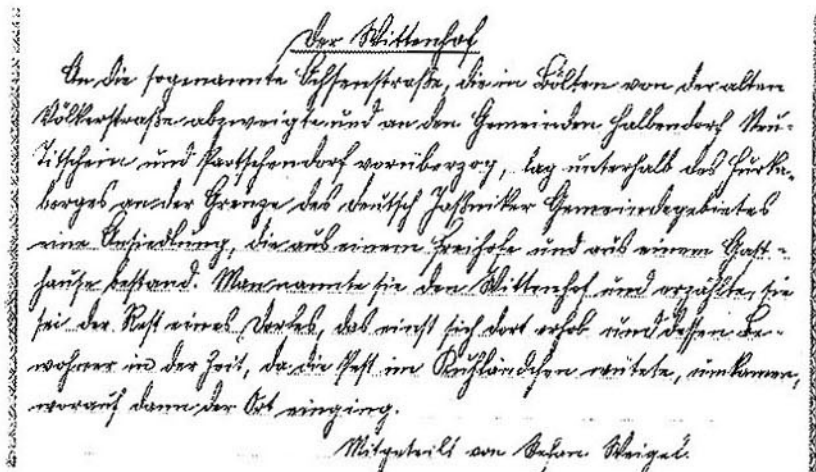 Der Wittenhof
An die sogenannte Ochsenstraße, die in Bölten von der alten
Völkerstraße abzweigte und an den Gemeinden Halbendorf Neu-
Titschein und Partschendorf vorüberzog, lag unterhalb des Hurka-
berges an der Grenze des deutsch Jaßniker Gemeindegebietes
eine Ansiedlung, die aus einem Freihofe und aus einem Gast-
hause bestand. Man nannte sie den Wittenhof und erzählte, sie
sei der Rest eines Dorfes, das einst sich dort erhob und dessen Be-
wohner in der Zeit, da die Pest im Kuhländchen wütete, umkamen,
worauf dann der Ort einging.
Mitgeteilt von Weigel.